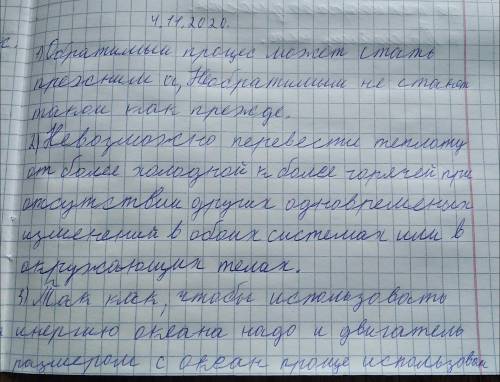 4.11.2020.
1) Обратимый процес может стать
прежним а, Необратимым не станет
такой как прежде.
2) Невозможно перевести теплоту
от более холодной к более горячей при
отсутствии других одновременых
изменений в обоих системах или в
окружающих телах.
3) Так как, чтобы использовать
инергию океана надо и двигатель
размером с океан проще использован